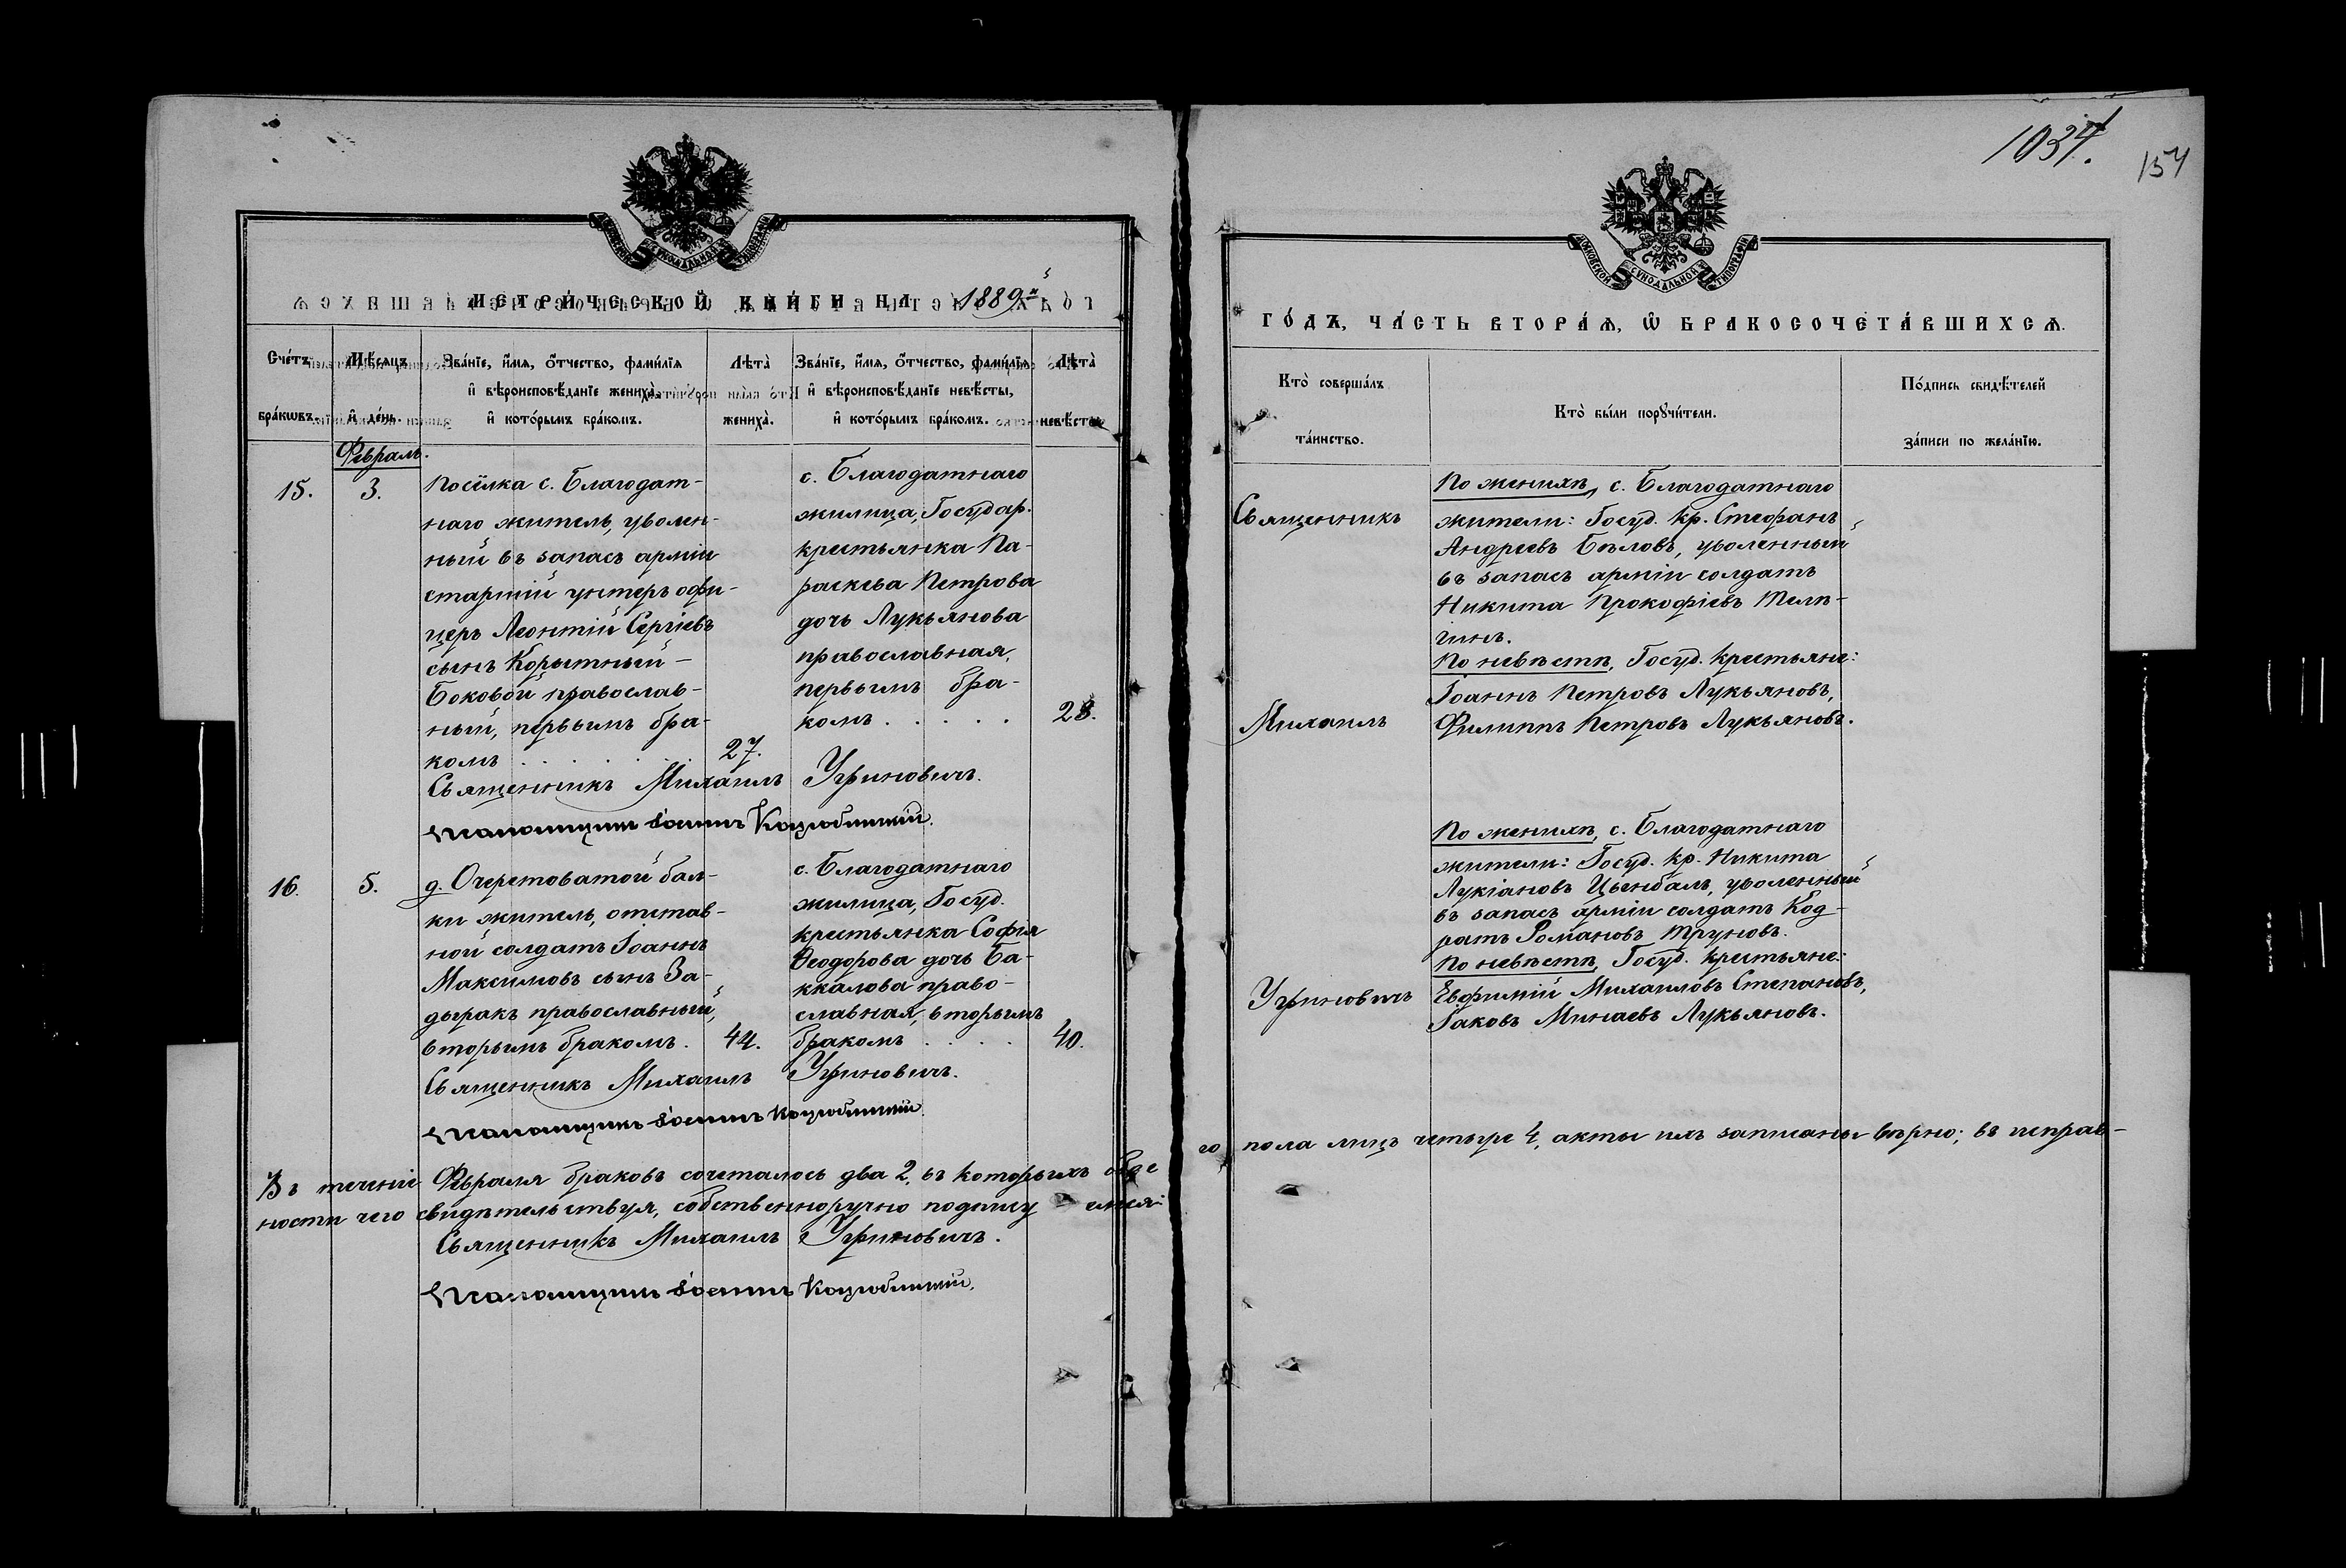 1034.
154
МОСКОВСКОЙ СѴНОДАЛЬНОЙ ТИПОГРАФІИ
МЕТРИ́ЧЕСКОЙ КНИ́ГИ НА 1889й
Сче́тъ бра́кѡвъ.
Мѣ́сяцъ и҆ де́нь.
Зва́нїе, и҆́мѧ, ѻ҆́тчество, фами́лїѧ
и҆ вѣроисповѣ́данїе жениха̀,
и҆ кото́рымъ бра́комъ.
Лѣта̀ жениха̀.
Зва́нїе, и҆́мѧ, ѻ҆́тчество, фами́лїѧ
и҆ вѣроисповѣ́данїе невѣ́сты,
и҆ кото́рымъ бра́комъ.
Лѣта̀ невѣ́сты
Февраль.
15.
3.
Посёлка с. Благодат-
наго житель, уволен-
ный въ запасъ арміи
старшій унтеръ офи-
церъ Леонтій Сергіевъ
сынъ Корытный-
Боковой православ-
ный, первымъ бра-
комъ . . . . . 27.
с. Благодатнаго
жилица, Государ.
крестьянка Па-
раскева Петрова
дочь Лукьянова
православная,
первымъ бра-
комъ . . . . . 23.
Священникъ Михаилъ Угриновичъ.
Псаломщикъ Іоаннъ Коцюбинскій.
16.
5.
д. Очеретоватой бал-
ки житель, отстав-
ной солдатъ Іоаннъ
Максимовъ сынъ За-
дыракъ православный,
вторымъ бракомъ. 44.
с. Благодатнаго
жилица, Госуд.
крестьянка Софія
Ѳеодорова дочь Ба-
ккалова право-
славная, вторымъ
бракомъ . . . . 40.
Священникъ Михаилъ Угриновичъ.
Псаломщикъ Іоаннъ Коцюбинскій.
Въ теченіе Февраля браковъ сочеталось два 2, въ которыхъ обое
ности чего свидѣтельствуя, собственноручно подпису емся:
Священникъ Михаилъ Угриновичъ.
Псаломщикъ Іоаннъ Коцюбинскій.
МОСКОВСКОЙ СѴНОДАЛЬНОЙ ТИПОГРАФІИ
ГО́ДЪ, ЧА́СТЬ ВТОРА́Ѧ, Ѽ БРАКОСОЧЕТА́ВШИХСѦ.
Кто̀ соверша́лъ
та́инство.
Кто̀ бы́ли порꙋчи́тели.
По́дпись свидѣ́телей
за́писи по жела́нїю.
Священникъ
Михаилъ
Угриновичъ
По женихѣ, с. Благодатнаго
жители: Госуд. кр. Стефанъ
Андреевъ Бѣловъ, уволенный
въ запасъ арміи солдатъ
Никита Прокофіевъ Телѣ-
гинъ.
По невѣстѣ, Госуд. крестьяне:
Іоаннъ Петровъ Лукьяновъ,
Филиппъ Петровъ Лукьяновъ.
По женихѣ, с. Благодатнаго
жители: Госуд. кр. Никита
Лукіановъ Цымбалъ, уволенный
въ запасъ арміи солдатъ Код-
ратъ Романовъ Труновъ.
По невѣстѣ, Госуд. крестьяне:
Евфимій Михаиловъ Степановъ,
Іаковъ Минаевъ Лукьяновъ.
го пола лицъ четыре 4, акты ихъ записаны вѣрно; въ исправ-